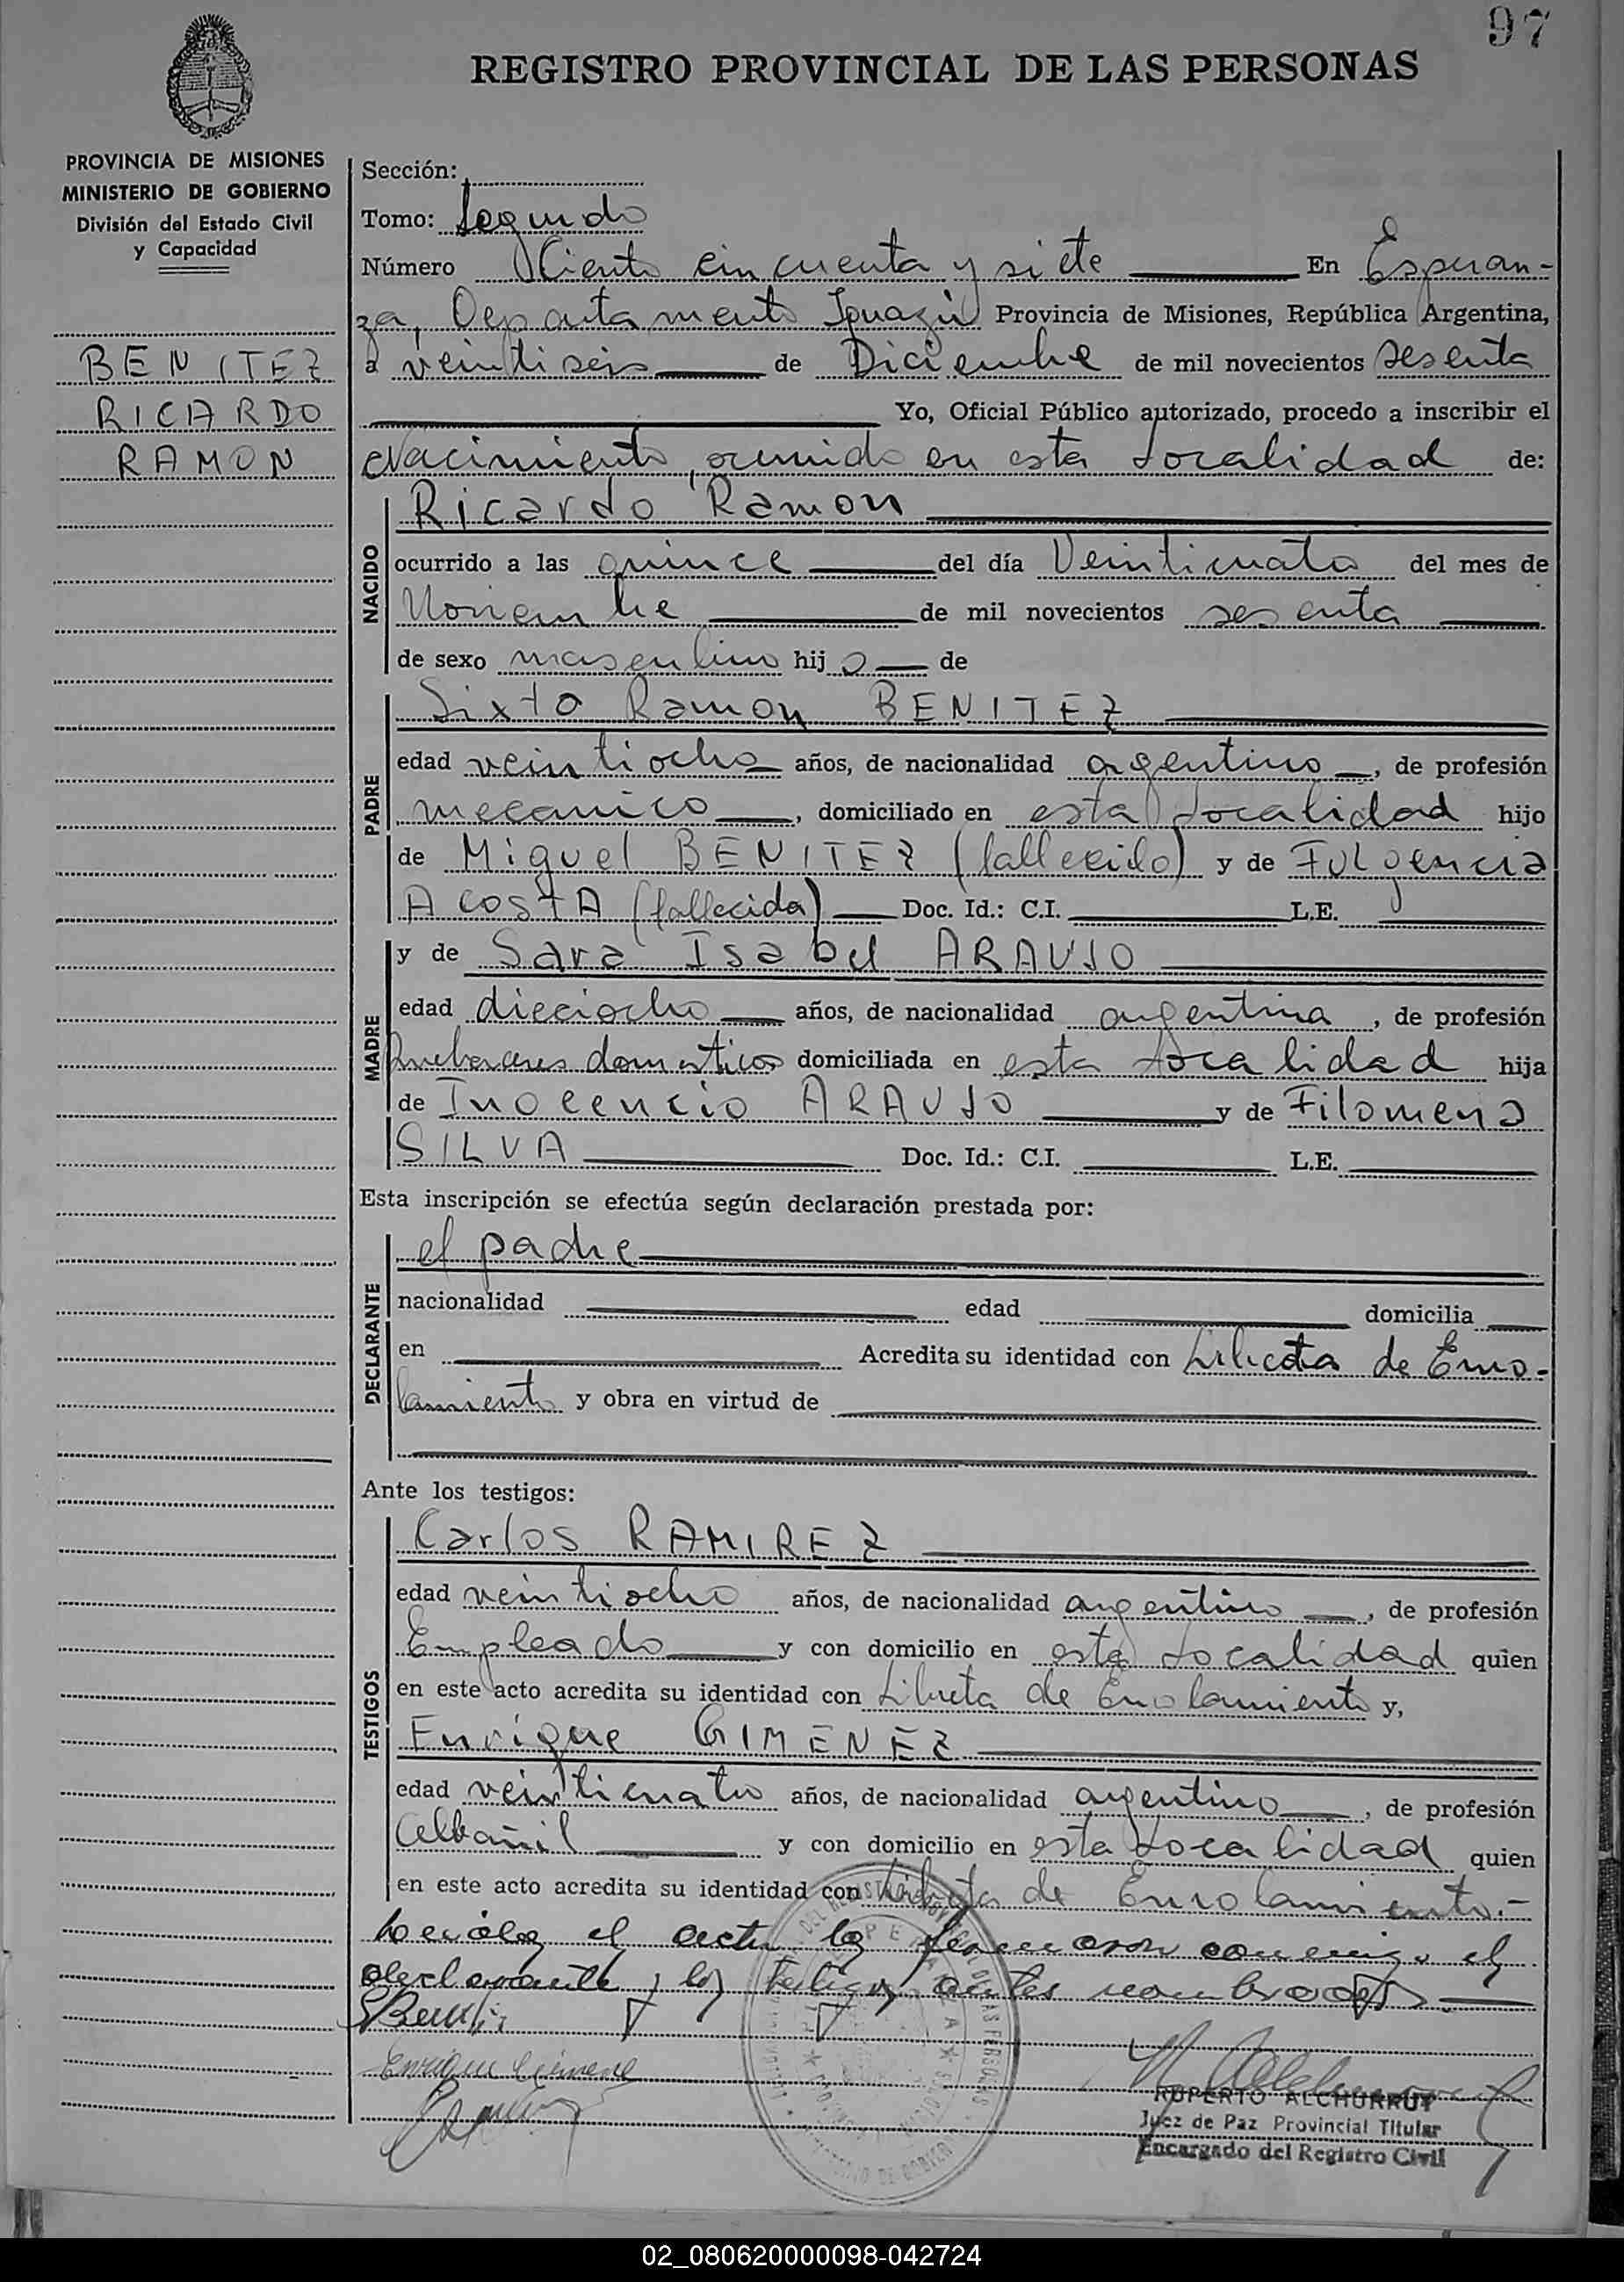 97
REGISTRO PROVINCIAL DE LAS PERSONAS
PROVINCIA DE MISIONES
MINISTERIO DE GOBIERNO
División del Estado Civil
y Capacidad
BENITEZ
RICARDO
RAMON
Sección:
Tomo: Segundo
Número Ciento cincuenta y siete En Esperan-
za, Departamento Iguazú Provincia de Misiones, República Argentina,
a veintiseis de Diciembre de mil novecientos sesenta
Yo, Oficial Público autorizado, procedo a inscribir el
Nacimiento, ocurrido en esta Localidad de:
NACIDO
Ricardo Ramon
ocurrido a las quince del día Veinticuatro del mes de
Noviembre de mil novecientos sesenta
de sexo masculino hijo de
PADRE
Sixto Ramon BENITEZ
edad veintiocho años, de nacionalidad argentino, de profesión
mecanico, domiciliado en esta Localidad hijo
de Miguel BENITEZ (fallecido) y de Fulgencia
ACOSTA (fallecida) Doc. Id.: C.I. L.E.
MADRE
y de Sara Isabel ARAUJO
edad dieciocho años, de nacionalidad argentina, de profesión
quehaceres domesticos domiciliada en esta Localidad hija
de Inocencio ARAUJO y de Filomena
SILVA Doc. Id.: C.I. L.E.
Esta inscripción se efectúa según declaración prestada por:
DECLARANTE
el padre
nacionalidad edad domicilia
en Acredita su identidad con Libreta de Enro-
lamiento y obra en virtud de
Ante los testigos:
TESTIGOS
Carlos RAMIREZ
edad veintiocho años, de nacionalidad argentino, de profesión
Empleado y con domicilio en esta Localidad quien
en este acto acredita su identidad con Libreta de Enrolamiento y,
Enrique GIMENEZ
edad veinticuatro años, de nacionalidad argentino, de profesión
Albañil y con domicilio en esta Localidad quien
en este acto acredita su identidad con Libreta de Enrolamiento.-
el acta la firmaron conmigo el
declarante y los testigos antes nombrados.
Enrique Gimenez
RUPERTO ALCHURRUT
Juez de Paz Provincial Titular
Encargado del Registro Civil
02_080620000098-042724